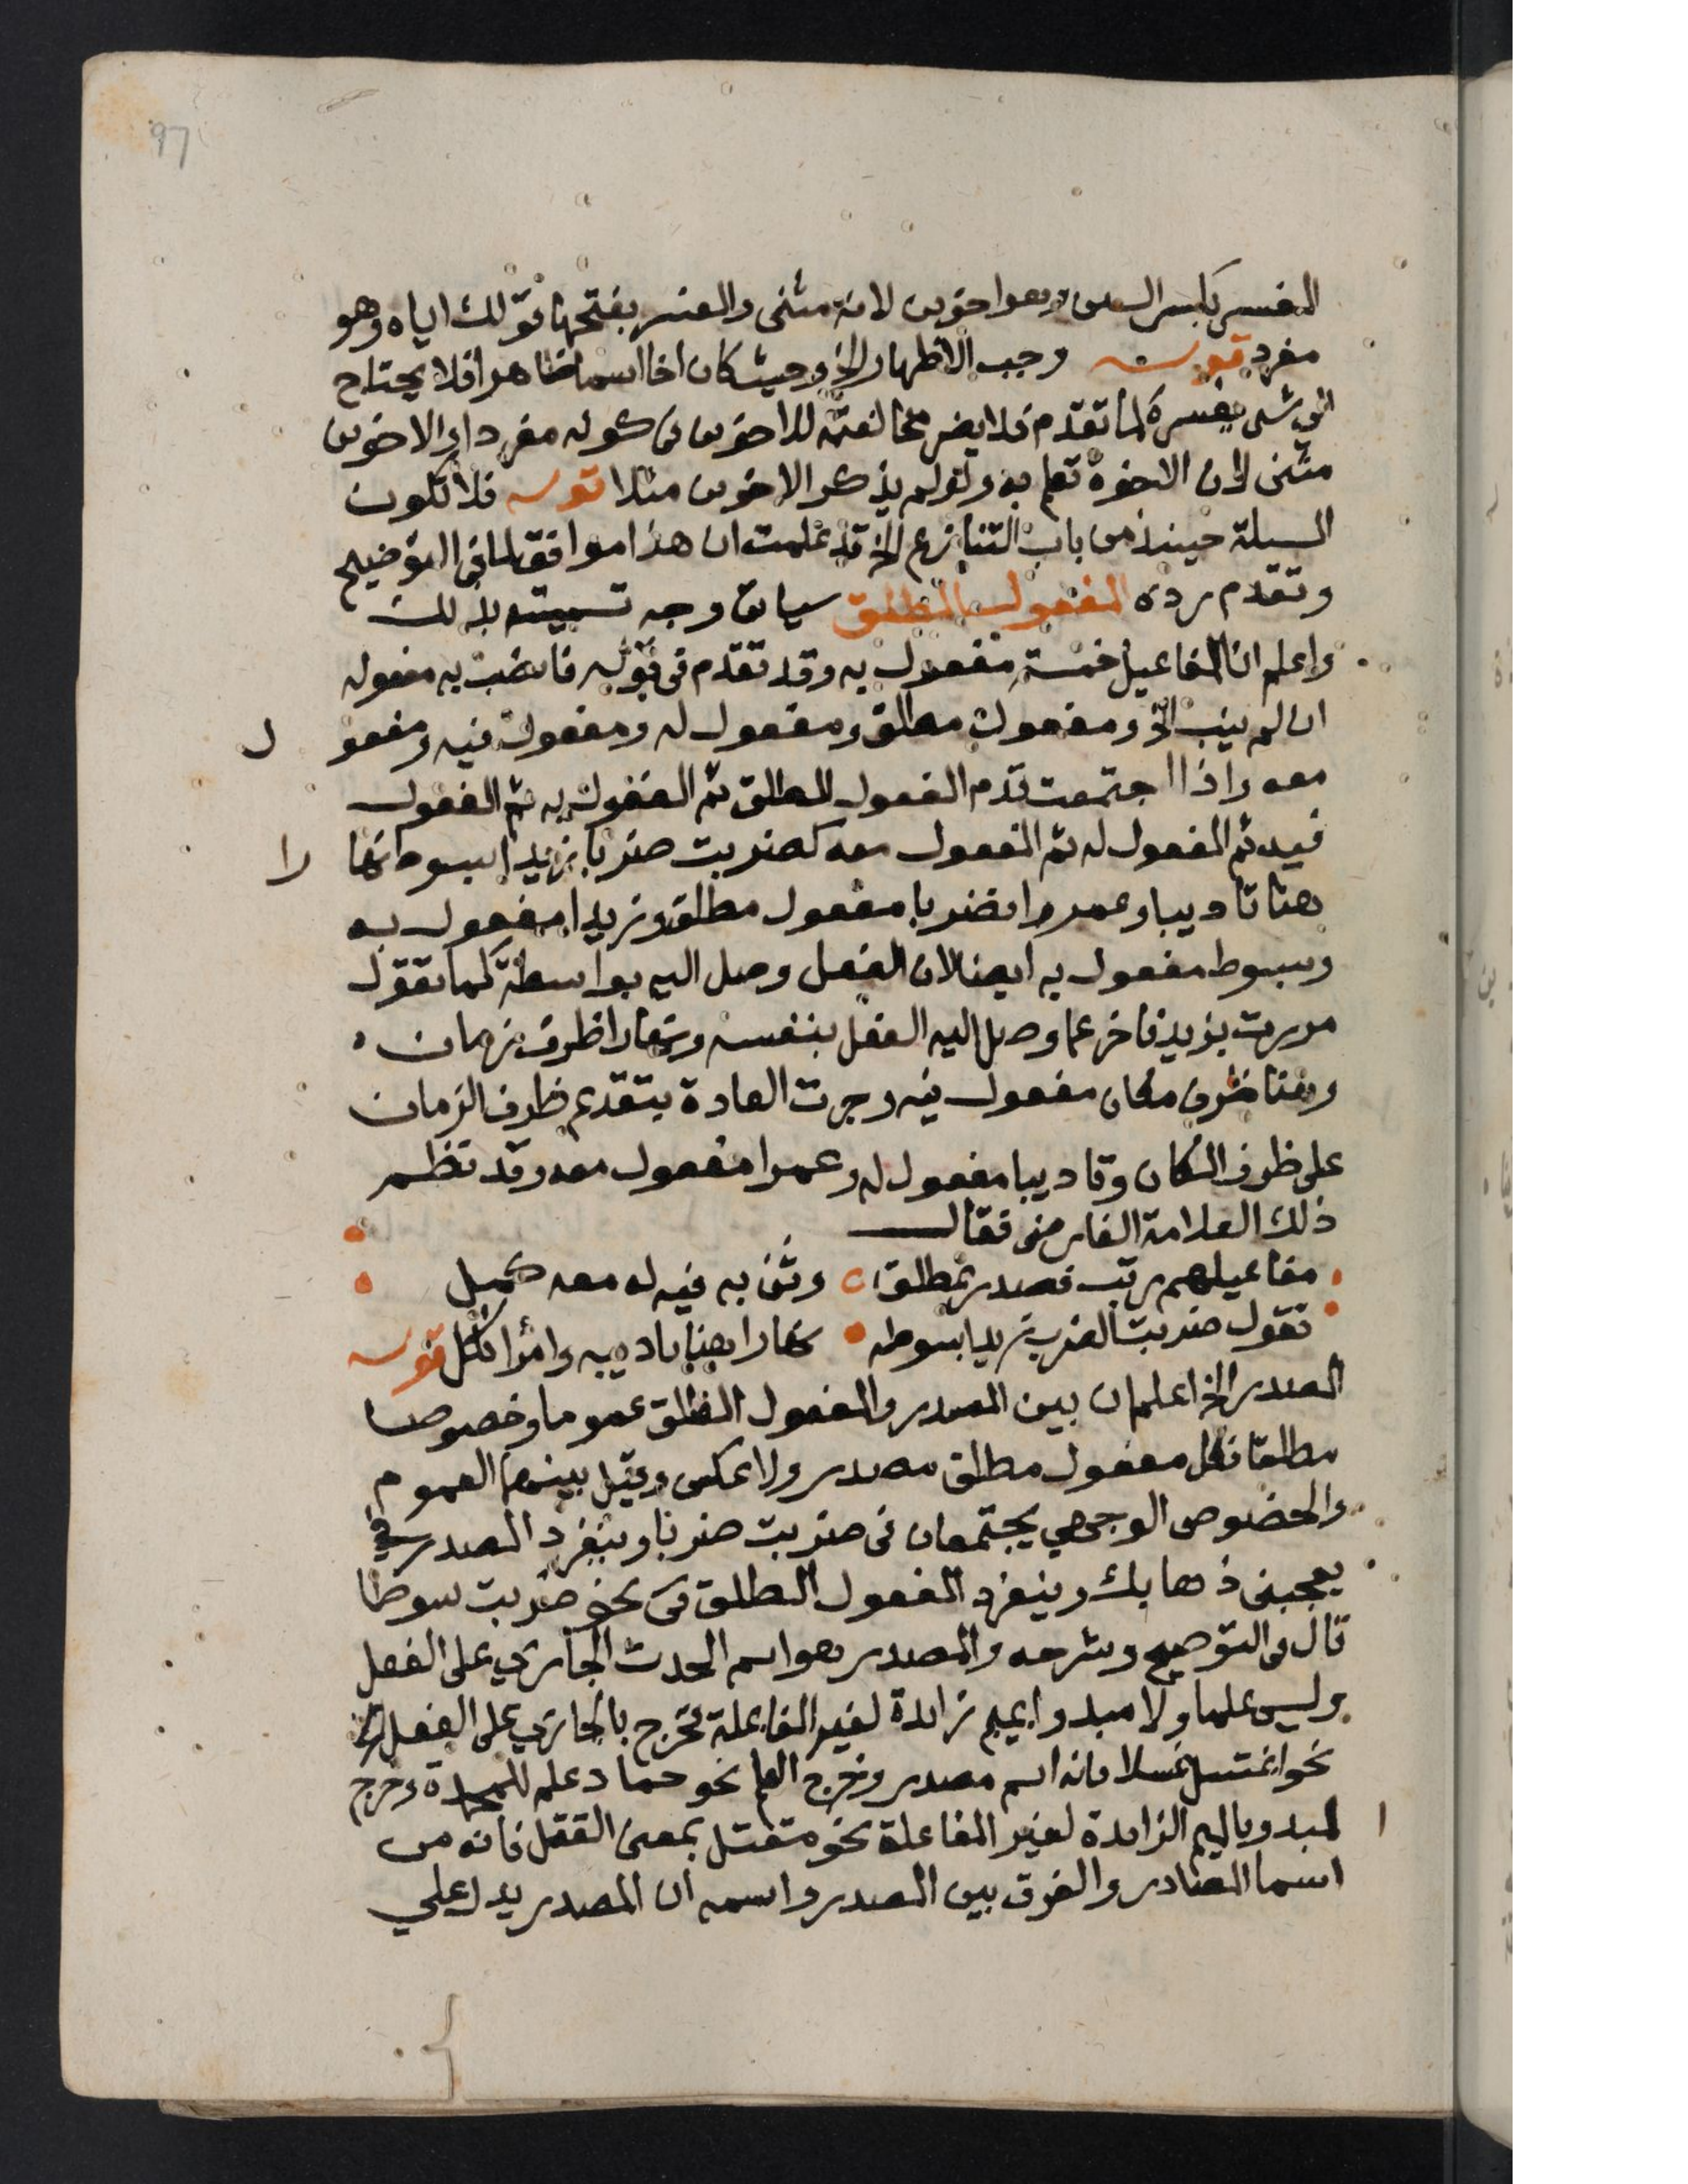 97
المفسر بكسر السين وهو اخوين لانه مثنى والمفسر بفتحها قولك اياه وهو
مفرد قوله وجب الاظهار الخ وحيث كان اخا اسما ظاهرا فلا يحتاج
الى شى يفسره لما تقدم فلا يضر مخالفته للاخوين فى كونه مفردا والاخوين
مثنى لان الاخوة تعلم به ولو لم يذكر الاخوين مثلا قوله فلا تكون
المسئلة حينئذ من باب التنازع الخ قد علمت ان هذا موافق لما فى التوضيح
وتقدم رده المفعول المطلق سياتى وجه تسميته بذلك
واعلم ان المفاعيل خمسة مفعول به وقد تقدم فى قوله فانصب به مفعوله
ان لم ينب الخ ومفعول مطلق ومفعول له ومفعول فيه ومفعو ل
معه واذا اجتمعت قدم المفعول المطلق ثم المفعول به ثم المفعول
فيه ثم المفعول له ثم المفعول معه كضربت ضربا زيدا بسوط نها را
هنا تاديبا وعمرا فضربا مفعول مطلق وزيدا مفعول به
وبسوط مفعول به ايضا لان الفعل وصل اليه بواسطة كما تقول
مررت بزيد فاخر عما وصل اليه الفعل بنفسه ونهارا ظرف زمان
وهنا ظرف مكان مفعول فيه وجرت العادة بتقديم ظرف الزمان
على ظرف المكان وتاديبا مفعول له وعمرا مفعول معه وقد نظم
ذلك العلامة الفارضى فقال
مفاعيلهم رتب فصدر بمطلق وثن به فيه له معه كمل
تقول ضربت الضرب زيدا بسوطه نهارا هنا تاديبه وامرا نكل قوله
المصدر الخ اعلم ان بين المصدر والمفعول المطلق عموما وخصوصا
مطلقا فكل مفعول مطلق مصدر ولا عكس وقيل بينهما العموم
والخصوص الوجهي يجتمعان فى ضربت ضربا وينفرد المصدر في
يعجبنى ذهابك وينفرد المفعول المطلق فى نحو ضربت سوطا
قال فى التوضيح وشرحه والمصدر هو اسم الحدث الجاري على الفعل
وليس علما ولا مبدوا بميم زائدة لغير المفاعلة فخرج بالجاري على الفعل
نحو اغتسل غسلا فانه اسم مصدر وخرج العلم نحو حماد علم للمحمدة وخرج
ا لمبدو بالميم الزائدة لغير المفاعلة نحو مقتل بمعنى القتل فانه من
اسما المصادر والفرق بين المصدر واسمه ان المصدر يدل علي